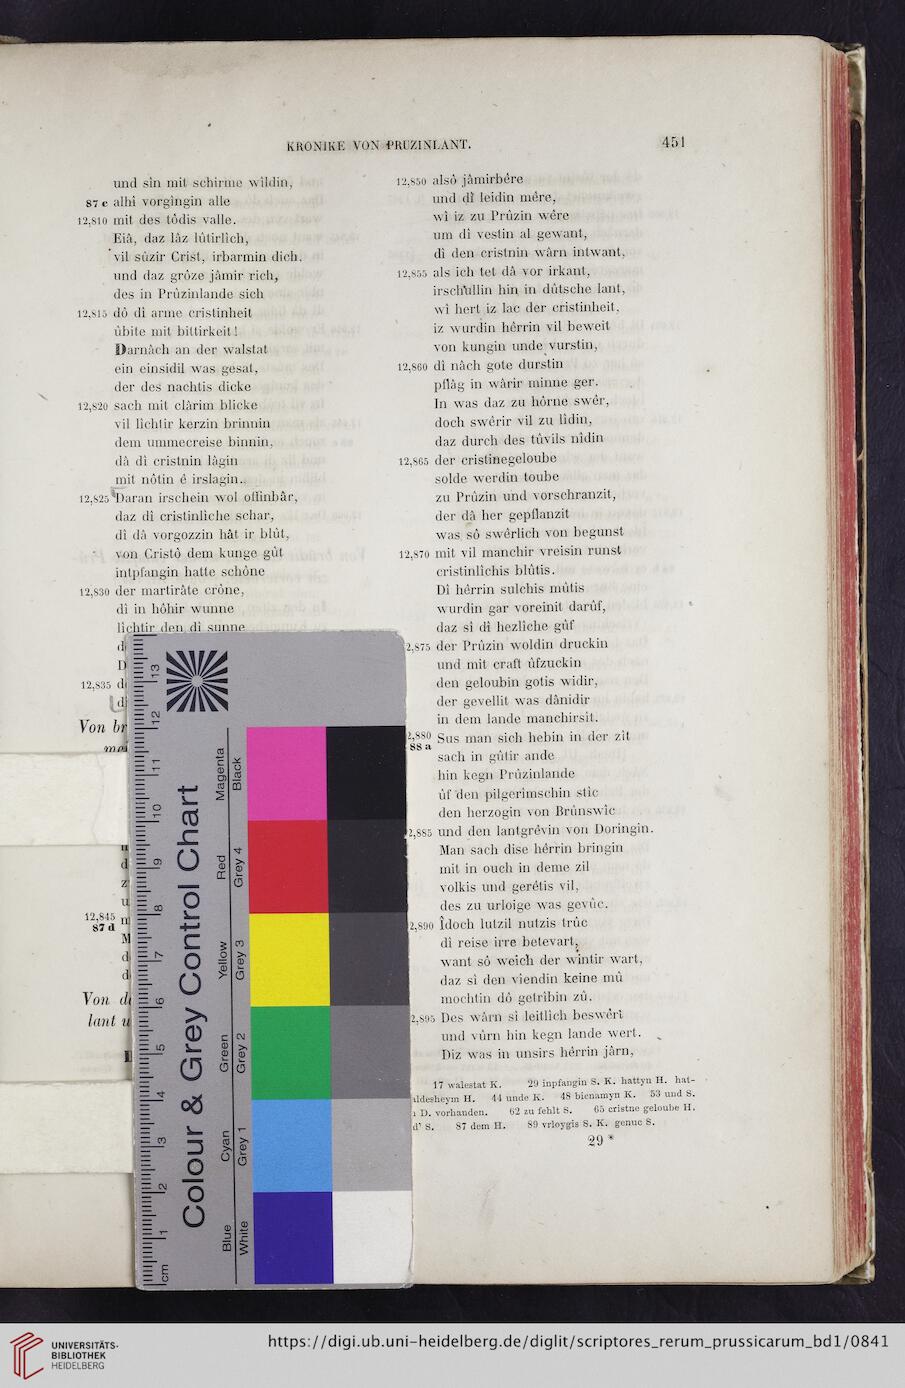 KRONIKE VON PRUZINLANT.
451
und sîn mit schirme wildin,
87 c alhî vorgîngin alle
12,810 mit des tôdis valle.
Eiâ, daz lâz lûtirlîch,
vil sûzir Crist, irbarmin dich.
und daz grôze jâmir rich,
des in Prûzinlande sich
12,815 dô dî arme cristinheit
ûbite mit bittirkeit!
Darnâch an der walstat
ein einsidil was gesat,
der des nachtis dicke
12,820 sach mit clârim blicke
vil lîchtir kerzin brinnin
dem ummecreise binnin,
dâ dî cristnin lâgin
mit nôtin ê irslagin.
12,825 Daran irschein wol offinbâr,
daz dî cristinlîche schar,
dî dâ vorgozzin hât ir blût,
von Cristô dem kunge gût
intpfangin hatte schône
12,830 der martirâte crône,
dî in hôhir wunne
lîchtir den dî sunne
12,835
Von
12,845
87 d
Von
lant
12,850 alsô jâmirbêre
und dî leidin mêre,
wî iz zu Prûzin wêre
um dî vestin al gewant,
dî den cristnin wârn intwant,
12,855 als ich tet dâ vor irkant,
irschullin hin in dûtsche lant,
wî hert iz lac der cristinheit,
iz wurdin hêrrin vil beweit
von kungin unde vurstin,
12,860 dî nâch gote durstin
pflâg in wârir minne ger.
In was daz zu hôrne swêr,
doch swêrir vil zu lîdin,
daz durch des tûvils nîdin
12,865 der cristinegeloube
solde werdin toube
zu Prûzin und vorschranzit,
der dâ her gepflanzit
was sô swêrlich von begunst
12,870 mit vil manchir vreisin runst
cristinlîchis blûtis.
Dî hêrrin sulchis mûtis
wurdin gar voreinit darûf,
daz sî dî hezlîche gûf
2,875 der Prûzin woldin druckin
und mit craft ûfzuckin
den geloubin gotis widir,
der gevellit was dânidir
in dem lande manchirsit.
2,880 Sus man sich hebin in der zît
88 a
sach in gûtir ande
hin kegn Prûzinlande
ûf den pilgerimschin stîc
den herzogin von Brûnswîc
2,885 und den lantgrêvin von Doringin.
Man sach dise hêrrin bringin
mit in ouch in deme zil
volkis und gerêtis vil,
des zu urloige was gevûc.
2,890 Îdoch lutzil nutzis trûc
dî reise irre betevart,
want sô weich der wintir wart,
daz sî den vîendin keine mû
mochtin dô getrîbin zû.
2,895 Des wârn sî leitlich beswêrt
und vûrn hin kegn lande wert.
Dîz was in unsirs hêrrin jârn,
17 walestat K. 29 inpfangin S. K. hattyn H. hat-
ildesheym H. 44 unde K. 48 bienamyn K. 53 und S.
D. vorhanden. 62 zu fehlt S. 65 cristne geloube H.
S. 87 dem H. 89 vrloygis S. K. genuc S.
29 *
Colour & Grey Control Chart
Blue Cyan Green Yellow Red Magenta
White Grey 1 Grey 2 Grey 3 Grey 4 Black
cm 1 2 3 4 5 6 7 8 9 10 11 12 13
UNIVERSITÄTS-
BIBLIOTHEK
HEIDELBERG
https://digi.ub.uni-heidelberg.de/diglit/scriptores_rerum_prussicarum_bd1/0841